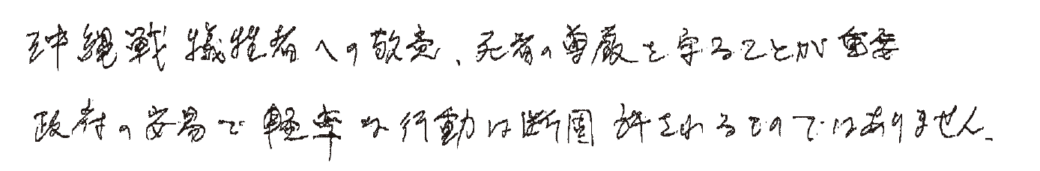 沖縄戦犠牲者への敬意、死者の尊厳を守ることが重要
政府の安易で軽率な行動は断固許されるものではありません。